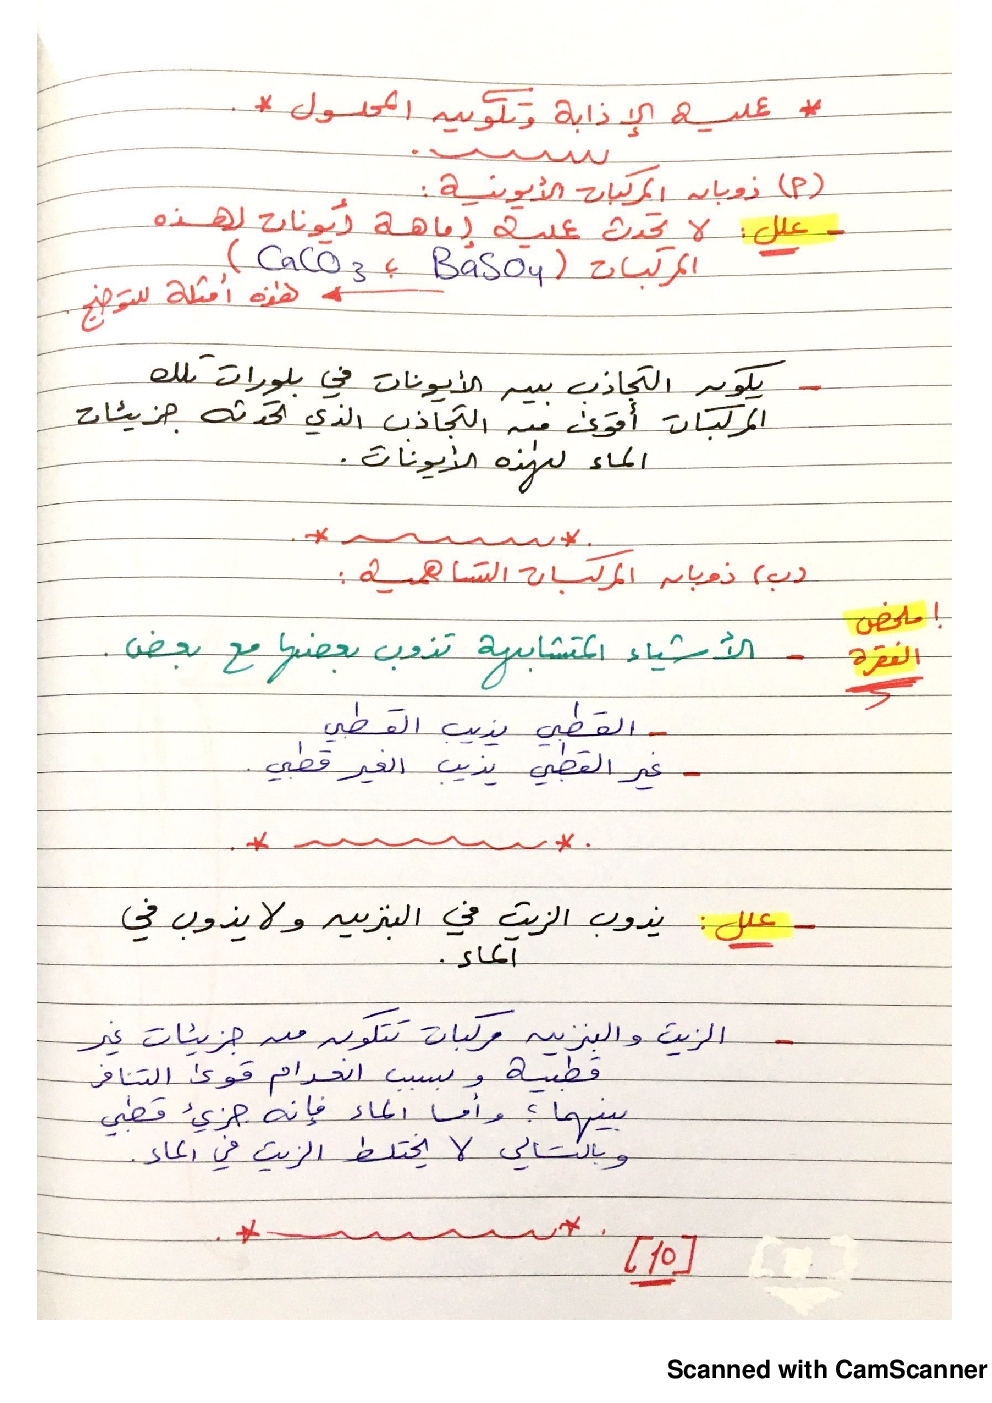 * عملية الإذابة وتكوين المحلول *
(م) ذوبان المركبات الأيونية :
- علل : لا تحدث عملية إماهة أيونات لهذه
المركبات ( BaSO4 ، CaCO3 )
هذه أمثلة للتوضيح .
- يكون التجاذب بين الأيونات في بلورات تلك
المركبات أقوى من التجاذب الذي تحدثه جزيئات
الماء لهذه الأيونات .
(ب) ذوبان المركبات التساهمية :
! ملخص
الفقرة
- الأشياء المتشابهة تذوب بعضها مع بعض .
- القطبي يذيب القطبي
- غير القطبي يذيب الغير قطبي .
- علل : يذوب الزيت في البنزين ولا يذوب في
الماء .
- الزيت والبنزين مركبات تتكون من جزيئات غير
قطبية وبسبب انعدام قوى التنافر
بينهما ؛ وأما الماء فإنه جزيء قطبي
وبالتالي لا يختلط الزيت في الماء .
[10]
Scanned with CamScanner